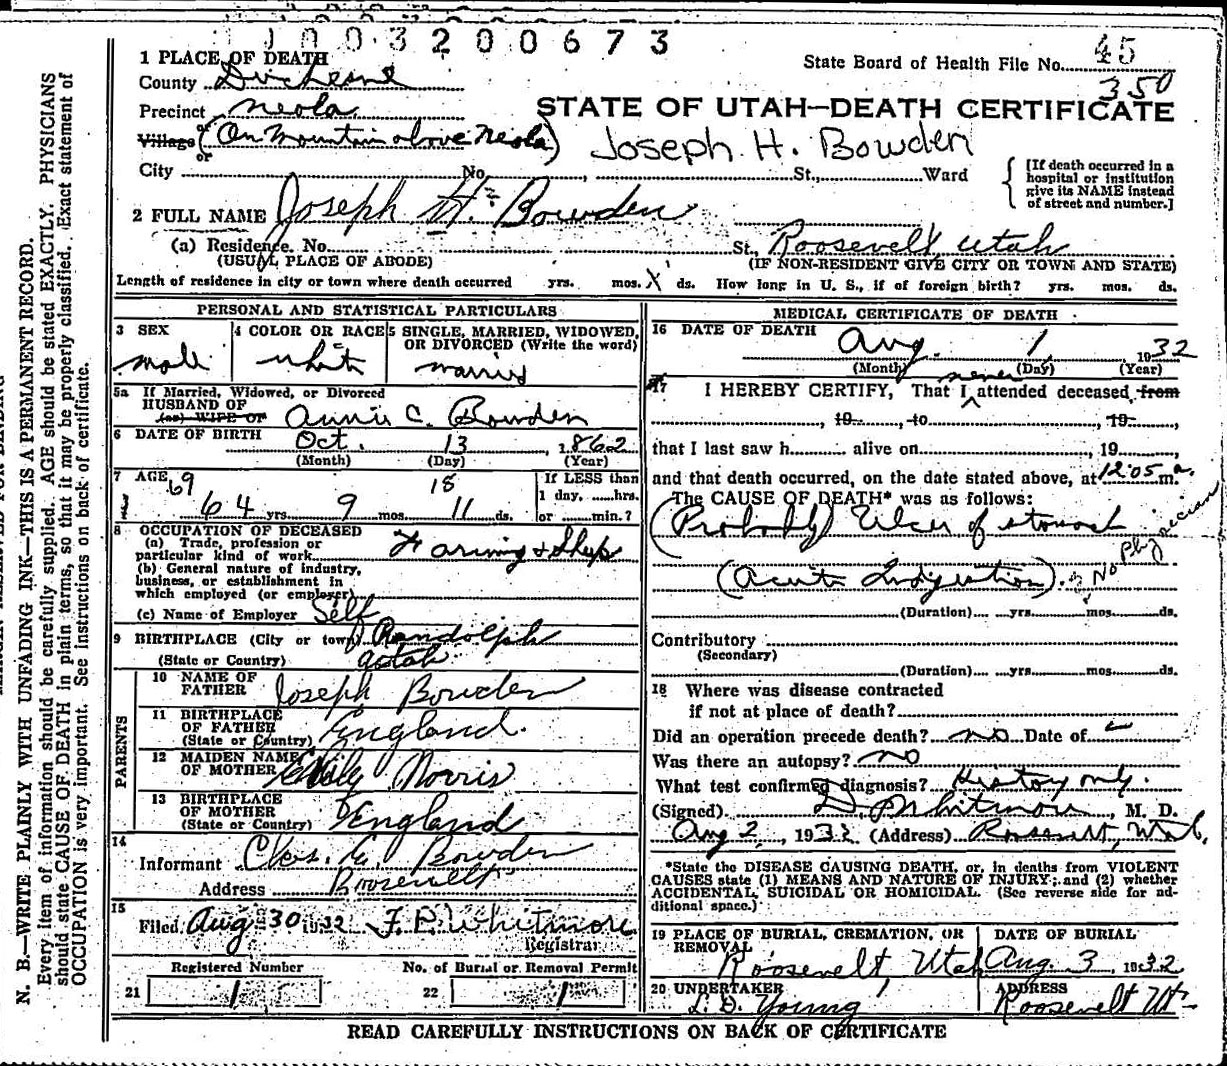 1 0 0 3 2 0 0 6 7 3
1 PLACE OF DEATH
State Board of Health File No. 45
350
County Duchesne
Precinct Neola
STATE OF UTAH—DEATH CERTIFICATE
Village or (On Mountain above Neola)
Joseph H. Bowden
or
City No. , St., Ward
[If death occurred in a hospital or institution give its NAME instead of street and number.]
2 FULL NAME Joseph H. Bowden
(a) Residence. No. St., Roosevelt, Utah
(USUAL PLACE OF ABODE) (IF NON-RESIDENT GIVE CITY OR TOWN AND STATE)
Length of residence in city or town where death occurred yrs. mos. X ds. How long in U. S., if of foreign birth? yrs. mos. ds.
PERSONAL AND STATISTICAL PARTICULARS
3 SEX
male
4 COLOR OR RACE
white
5 SINGLE, MARRIED, WIDOWED, OR DIVORCED (Write the word)
married
5a If Married, Widowed, or Divorced
HUSBAND OF
(or) WIFE OF Annie C. Bowden
6 DATE OF BIRTH Oct. 13, 1862
(Month) (Day) (Year)
7 AGE 69 18
64 yrs. 9 mos. 11 ds.
If LESS than
1 day, ......hrs.
or ......min.?
8 OCCUPATION OF DECEASED
(a) Trade, profession or
particular kind of work Farming & Sheep
(b) General nature of industry,
business, or establishment in
which employed (or employer)
(c) Name of Employer Self
9 BIRTHPLACE (City or town) Randolph
(State or Country) Utah
PARENTS
10 NAME OF
FATHER Joseph Bowden
11 BIRTHPLACE
OF FATHER
(State or Country) England.
12 MAIDEN NAME
OF MOTHER Norris
13 BIRTHPLACE
OF MOTHER
(State or Country) England
14
Informant Bowden
Address Roosevelt
15
Filed Aug 30 1932 F. P. Whitmore
Registrar
Registered Number No. of Burial or Removal Permit
21 1 22 1
MEDICAL CERTIFICATE OF DEATH
16 DATE OF DEATH
Aug. 1, 1932
(Month) (Day) (Year)
17 I HEREBY CERTIFY, That I never attended deceased from
, 19 , to , 19
that I last saw h alive on , 19
and that death occurred, on the date stated above, at 12:05 a.m.
The CAUSE OF DEATH* was as follows:
(Probably) Ulcer of stomach
(Acute Indigestion). No Physician
(Duration) yrs. mos. ds.
Contributory
(Secondary)
(Duration) yrs. mos. ds.
18 Where was disease contracted
if not at place of death?
Did an operation precede death? no Date of
Was there an autopsy? no
What test confirmed diagnosis? History only.
(Signed) Whitmore, M. D.
Aug 2, 1932 (Address) Roosevelt, Utah.
*State the DISEASE CAUSING DEATH, or, in deaths from VIOLENT
CAUSES state (1) MEANS AND NATURE OF INJURY; and (2) whether
ACCIDENTAL, SUICIDAL OR HOMICIDAL. (See reverse side for ad-
ditional space.)
19 PLACE OF BURIAL, CREMATION, OR
REMOVAL
Roosevelt, Utah
DATE OF BURIAL
Aug. 3, 1932
20 UNDERTAKER
L. D. Young
ADDRESS
Roosevelt Ut
READ CAREFULLY INSTRUCTIONS ON BACK OF CERTIFICATE
N. B.—WRITE PLAINLY WITH UNFADING INK—THIS IS A PERMANENT RECORD.
Every item of information should be carefully supplied. AGE should be stated EXACTLY. PHYSICIANS
should state CAUSE OF DEATH in plain terms, so that it may be properly classified. Exact statement of
OCCUPATION is very important. See instructions on back of certificate.